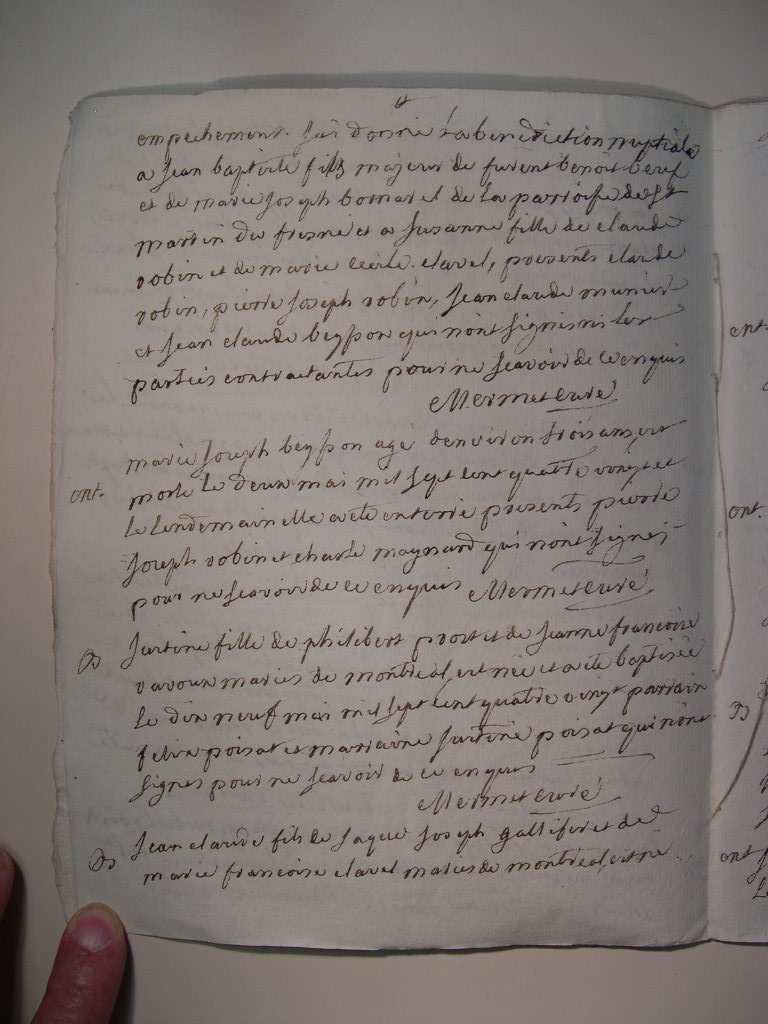 empechement. j'ai donné la benediction nuptiale
a jean baptiste fils majeur de furent benoit beuf
et de marie joseph bomarel de la parroisse de St
martin du fresne et a susanne fille de claude
robin et de marie cecile clavel, presents claude
robin, pierre joseph robin, jean claude munier
et jean claude beysson qui n'ont signes ni les
parties contractantes pour ne scavoir de ce enquis
Mermet curé
marie joseph beysson agé d'environ trois ans est
ent. morte le deux mai mil sept cent quatre vingt et
le lendemain elle a eté enterré presents pierre
joseph robin et charle maynard qui n'ont signes
pour ne scavoir de ce enquis Mermet curé
B justine fille de philibert prost et de jeanne francoise
varoux maries de montreal, est née et a eté baptisée
le dix neuf mai mil sept cent quatre vingt parrain
felix poisat et marraine justine poisat qui n'ont
signes pour ne scavoir de ce enquis
Mermet curé
B jean claude fils de jaque joseph galliferet de
marie francoise clavel maries de montreal, est né
ent.
ont.
B
ont